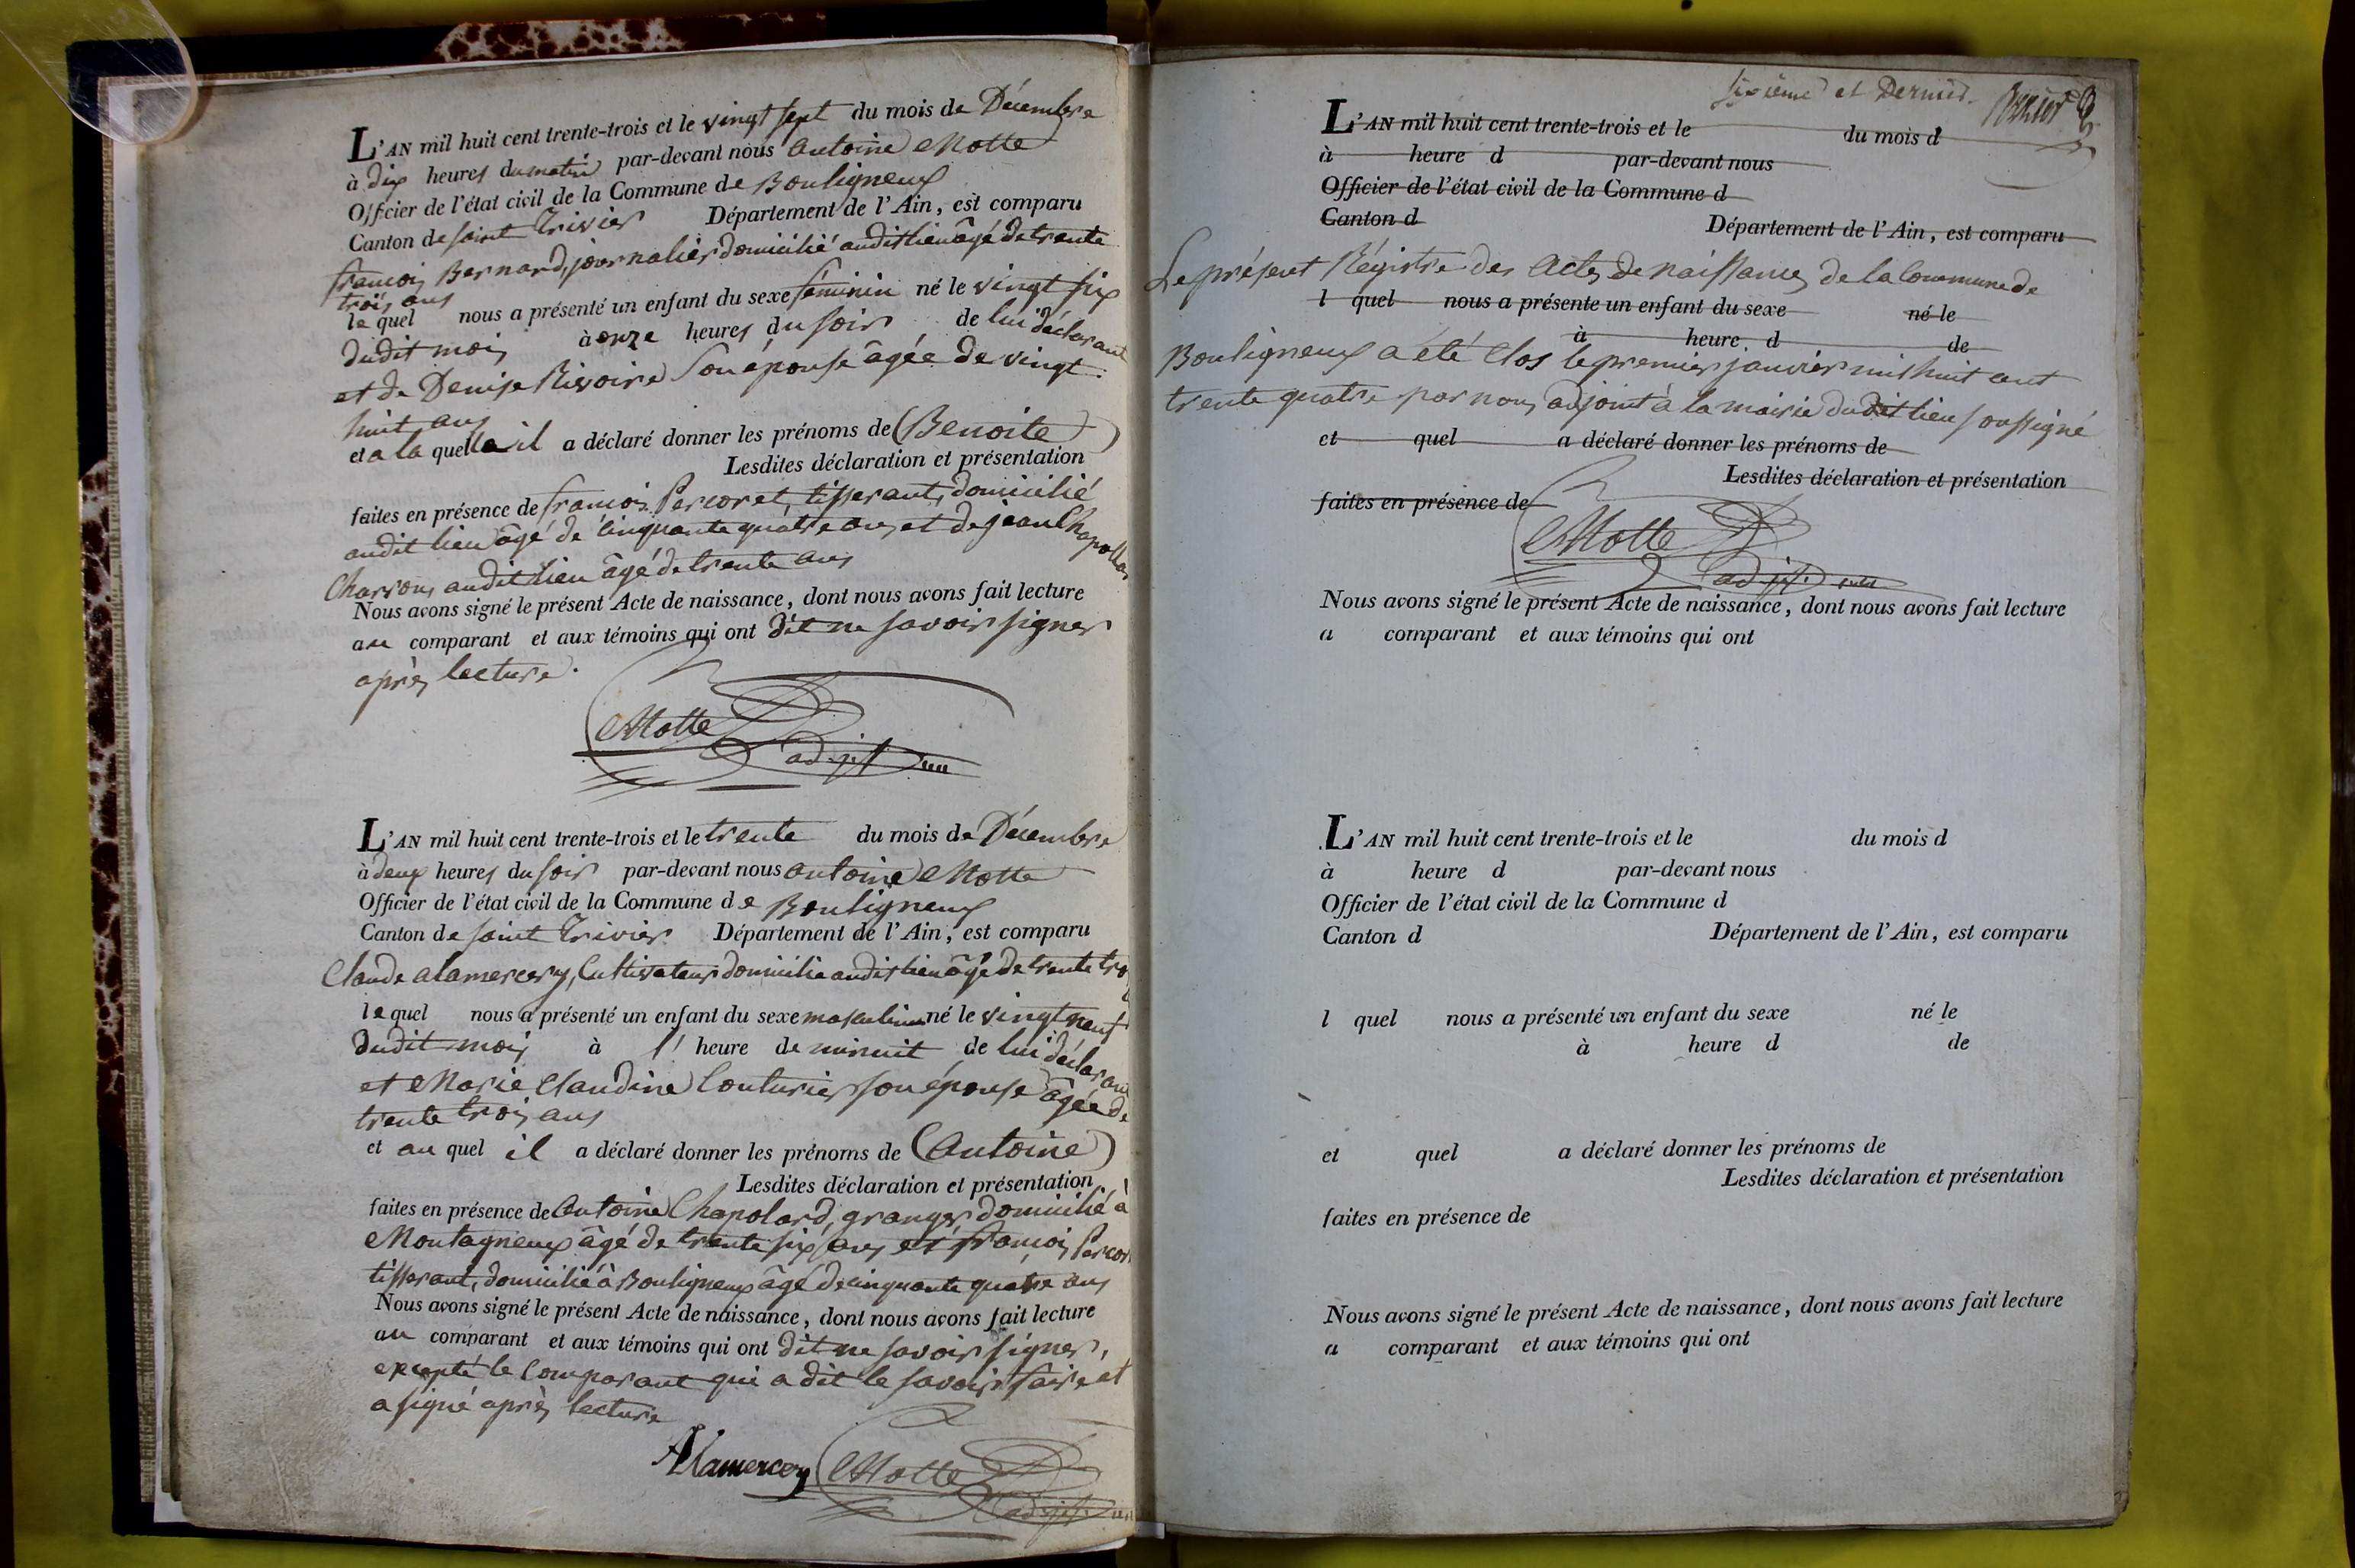 L'AN mil huit cent trente-trois et le vingt sept du mois de Décembre
à dix heures du matin par-devant nous antoine Motte
Officier de l'état civil de la Commune de Bouligneux
Canton de saint Trivier Département de l'Ain, est comparu
françois Bernard, journalier domicilié audit lieu âgé de trente
trois ans
le quel nous a présenté un enfant du sexe féminin né le vingt six
dudit mois à onze heures du soir de lui déclarant
et de Denise Rivoire son épouse âgée de vingt
huit ans
et a la quelle il a déclaré donner les prénoms de (Benoite)
Lesdites déclaration et présentation
faites en présence de françois Percoret, tisserant, domicilié
audit lieu âgé de cinquante quatre ans, et de jean Chapollar
Charron, audit lieu âgé de trente ans
Nous avons signé le présent Acte de naissance, dont nous avons fait lecture
au comparant et aux témoins qui ont dit ne savoir signer
après lecture.
Motte
adjt
L'AN mil huit cent trente-trois et le trente du mois de Décembre
à deux heures du soir par-devant nous antoine Motte
Officier de l'état civil de la Commune de Bouligneux
Canton de saint Trivier Département de l'Ain, est comparu
Claude alamercery, Cultivateur domicilié audit lieu âgé de trente tro
le quel nous a présenté un enfant du sexe masculin né le vingt neuf
dudit mois à l' heure de minuit de lui déclarant
et Marie Claudine Couturier son épouse âgée de
trente trois ans
et au quel il a déclaré donner les prénoms de (Antoine)
Lesdites déclaration et présentation
faites en présence de Antoine Chapolard, granger domicilié à
Montagneux âgé de trente six ans, et françois Percor
tisserant, domicilié à Bouligneux âgé de cinquante quatre ans
Nous avons signé le présent Acte de naissance, dont nous avons fait lecture
au comparant et aux témoins qui ont dit ne savoir signer,
excepté le Comparant qui a dit le savoir faire et
a signé après lecture
Alamercery Motte
adjt
sixième et Dernier.
L'AN mil huit cent trente-trois et le du mois d
à heure d par-devant nous
Officier de l'état civil de la Commune d
Canton d Département de l'Ain, est comparu
Le présent Régistre des Actes de naissance, de la Commune de
l quel nous a présenté un enfant du sexe né le
à heure d de
Bouligneux a été Clos le premier janvier mil huit cent
trente quatre par nous, adjoint à la mairie dudit lieu soussigné
et quel a déclaré donner les prénoms de
Lesdites déclaration et présentation
faites en présence de
Motte
adjt
Nous avons signé le présent Acte de naissance, dont nous avons fait lecture
a comparant et aux témoins qui ont
L'AN mil huit cent trente-trois et le du mois d
à heure d par-devant nous
Officier de l'état civil de la Commune d
Canton d Département de l'Ain, est comparu
l quel nous a présenté un enfant du sexe né le
à heure d de
et quel a déclaré donner les prénoms de
Lesdites déclaration et présentation
faites en présence de
Nous avons signé le présent Acte de naissance, dont nous avons fait lecture
a comparant et aux témoins qui ont